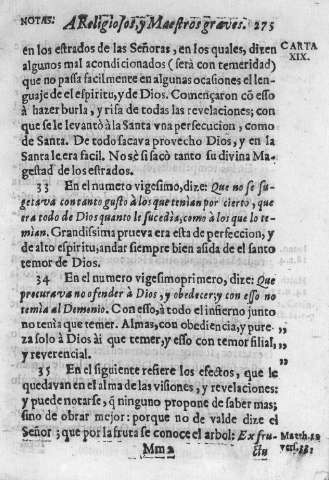 NOTAS. A Religiosos, y Maestros graves. 275
en los estrados de las Señoras, en los quales, dizen
algunos mal acondicionados (serà con temeridad)
que no passa facilmente en algunas ocasiones el len-
guaje de el espiritu, y de Dios. Començaron cõ esso
à hazer burla, y risa de todas las revelaciones; con
que se le levantò à la Santa vna persecucion, como
de Santa. De todo sacava provecho Dios, y en la
Santa le era facil. No sè si sacò tanto su divina Ma-
gestad de los estrados.
CARTA
XIX.
33 En el numero vigesimo, dize: Que no se su-
getava con tanto gusto à los que tenian por cierto, que
era todo de Dios quanto le sucedìa, como à los que lo te-
mian. Grandissima prueva era esta de perfeccion, y
de alto espiritu, andar siempre bien asida de el santo
temor de Dios.
34 En el numero vigesimoprimero, dize: Que
procurava no ofender à Dios, y obedecer, y con esso no
temia al Demonio. Con esso, à todo el infierno junto
no tenìa que temer. Almas, con obediencia, y pure- ,,
za solo à Dios ài que temer, y esso con temor filial, ,,
y reverencial. ,,
35 En el siguiente refiere los efectos, que le
quedavan en el alma de las visiones, y revelaciones:
y puede notarse, q̃ ninguno propone de saber mas;
sino de obrar mejor: porque no de valde dize el
Señor; que por la fruta se conoce el arbol: Ex fru-
Matth. 12
vers. 33.
Mm 2 ctu